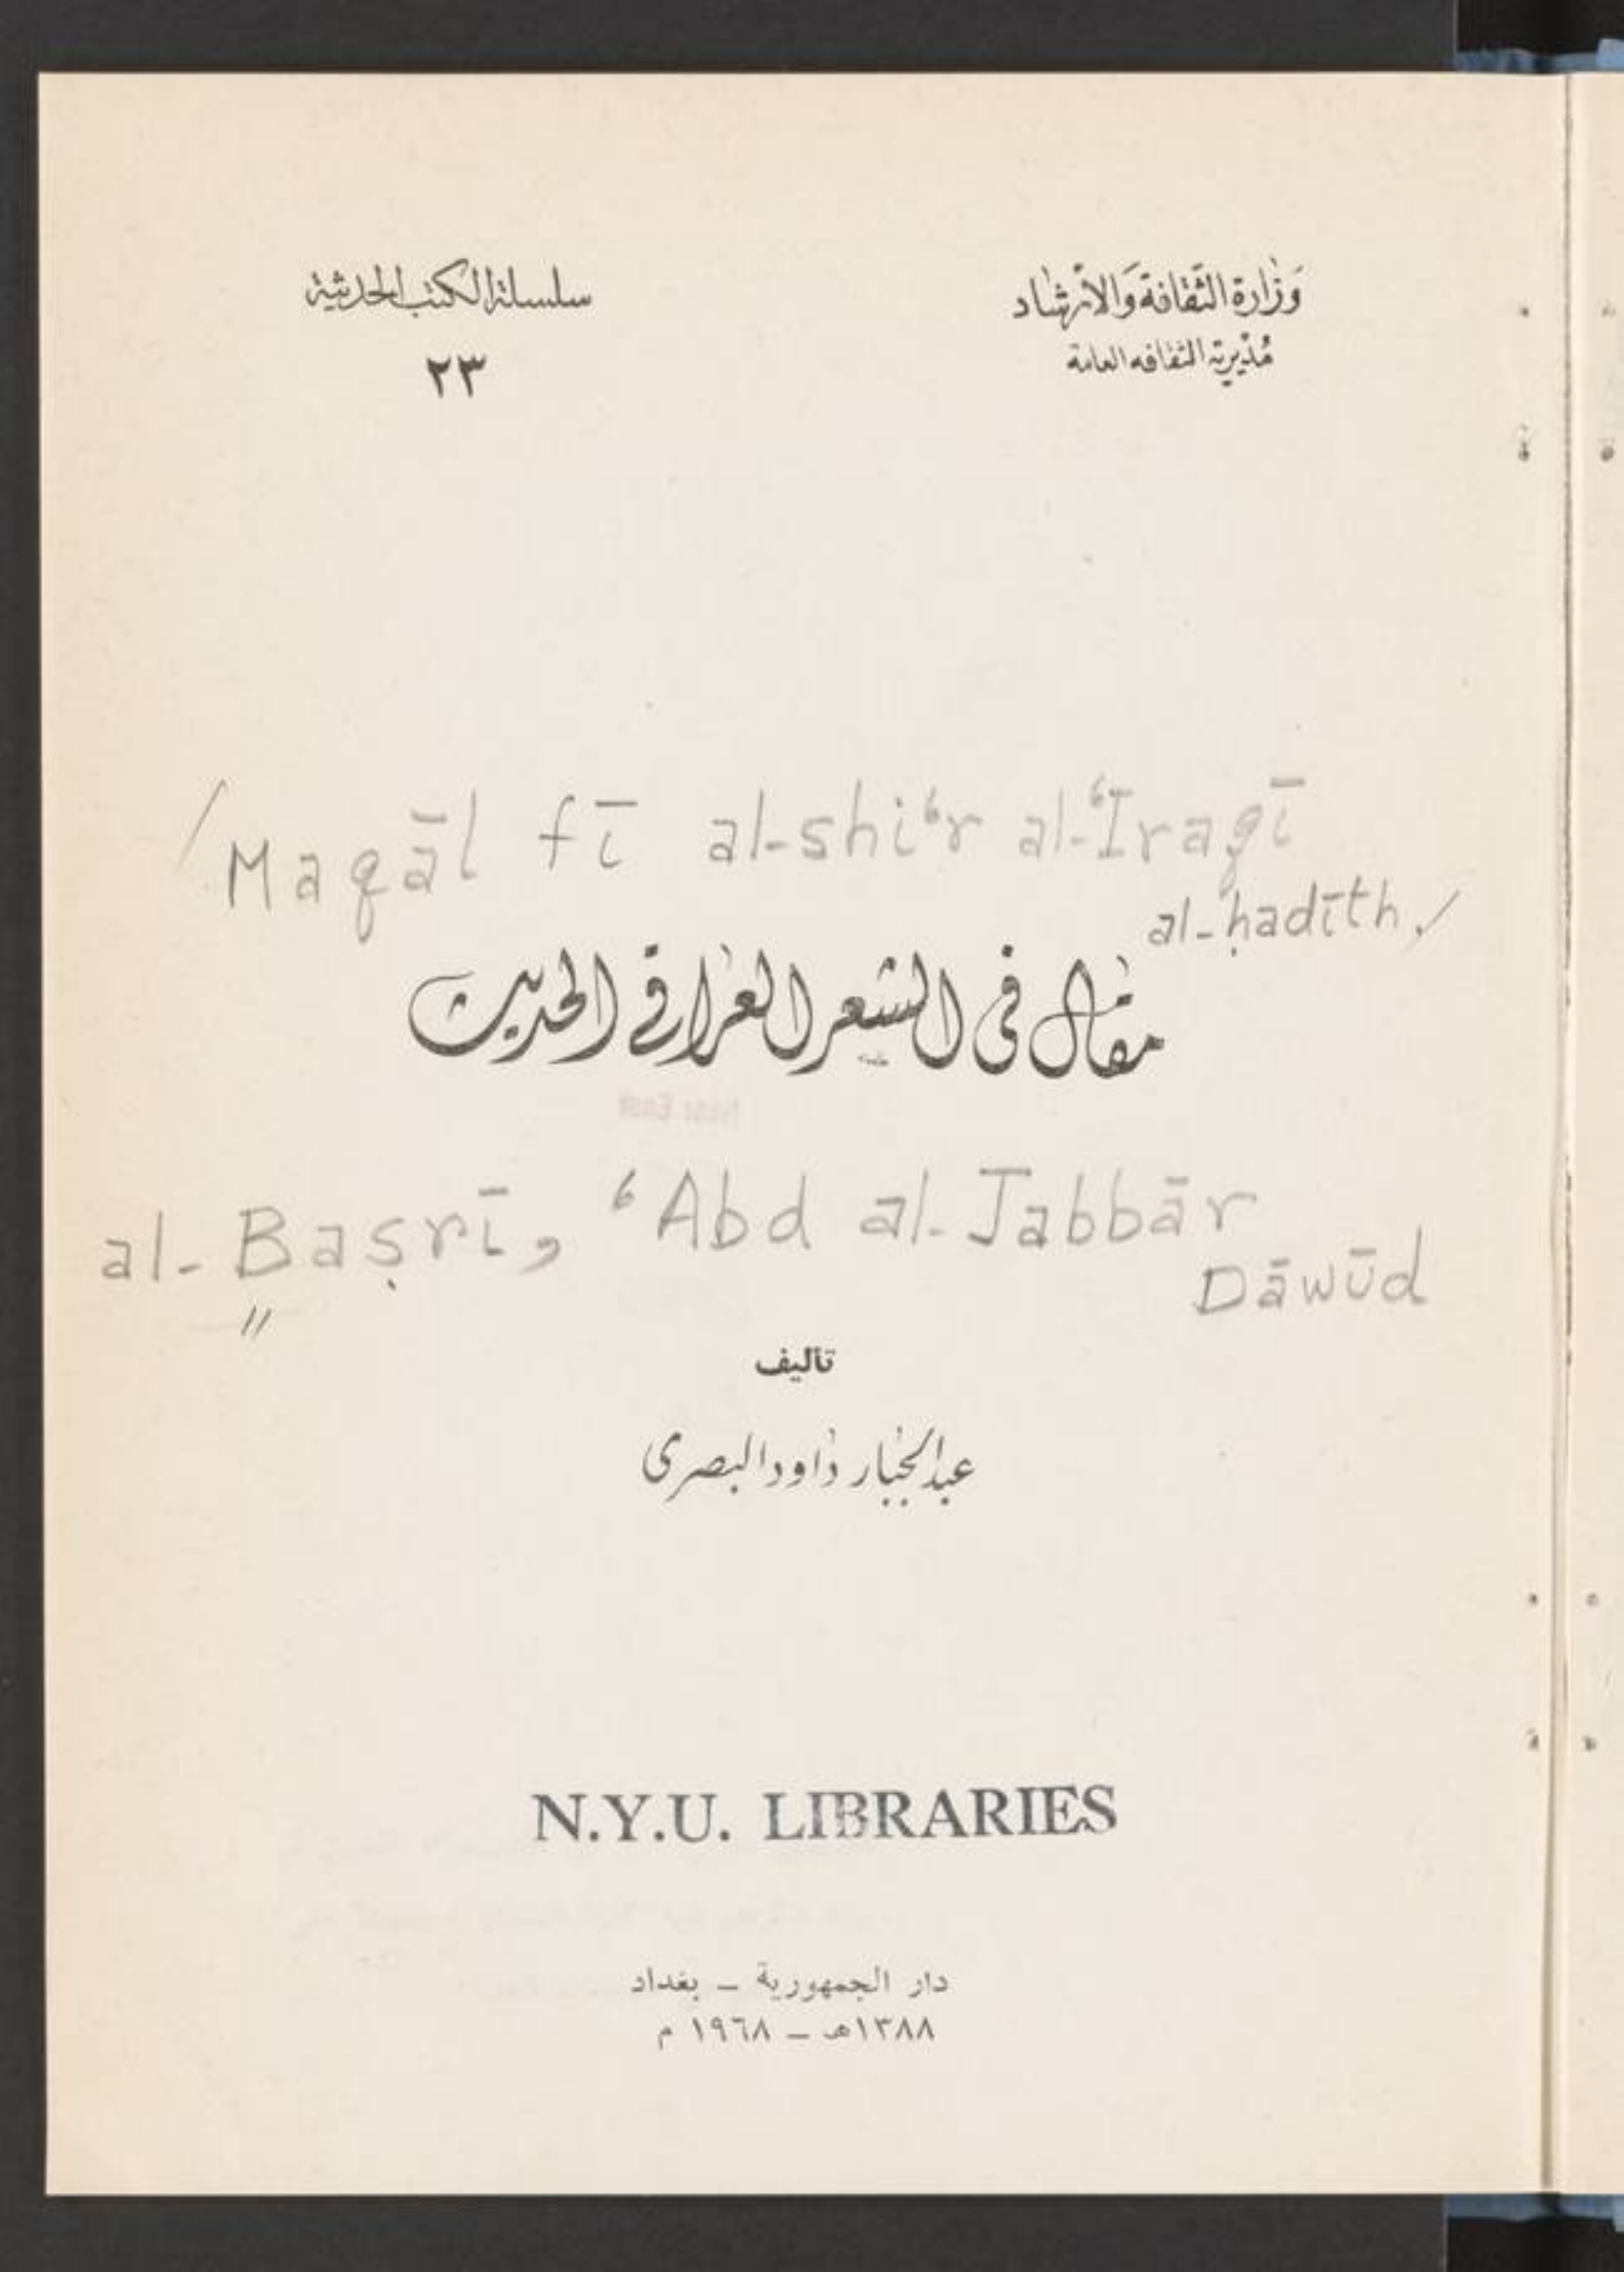 وزارة الثقافة والارشاد
مديرية الثقافة العامة
سلسلة الكتب الحديثة
٢٣
/Maqāl fī al-shiʿr al-ʿIraqī
al-ḥadīth./
مقال فى الشعر العراقي الحديث
al-Baṣrī, ʿAbd al-Jabbār
Dāwūd
تأليف
عبدالجبار داود البصرى
N.Y.U. LIBRARIES
دار الجمهورية – بغداد
١٣٨٨هـ – ١٩٦٨ م